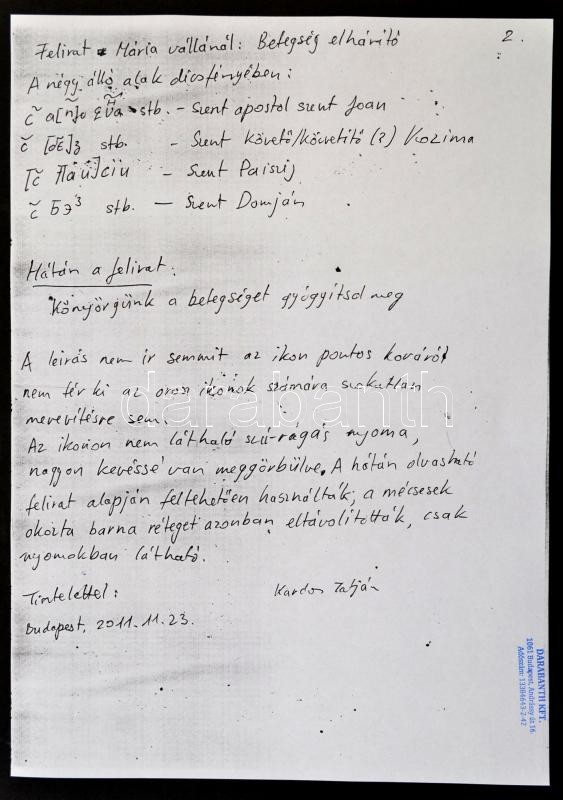 2.
Felirat Mária vállánál: Betegség elhárító
A négy álló alak dicsfényében:
stb. - Szent apostol szent Joan
stb. - Szent Követő/közvetítő (?) Kozima
- Szent Paiszij
stb. - Szent Domján
Hátán a felirat:
Könyörgünk a betegséget gyógyítsd meg
A leírás nem ír semmit az ikon pontos koráról
nem tér ki az orosz ikonok számára szokatlan
merevítésre sem.
Az ikonon nem látható szú-rágás nyoma,
nagyon kevéssé van meggörbülve. A hátán olvasható
felirat alapján feltehetően használták, a mécsesek
okozta barna réteget azonban eltávolították, csak
nyomokban látható.
Tisztelettel:
Kardos Tatján
Budapest, 2011.11.23.
darabanth
DARABANTH KFT.
1061 Budapest, Andrássy út 16
Adószám: 13384643-2-42